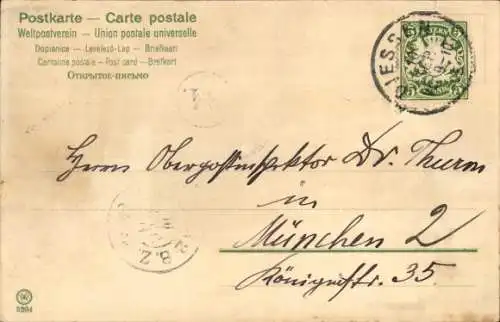 Postkarte — Carte postale
Weltpostverein — Union postale universelle
Dopisnice — Levelező-Lap — Briefkaart
Cartolina postale — Post card — Brefkort
Открытое письмо
DIESSEN
5 5
BAYERN
Herrn Oberpostinspektor Dr. Thurm
in
München 2
Königinstr. 35.